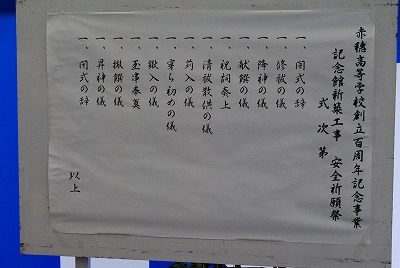 赤穂高等学校創立百周年記念事業
記念館新築工事　安全祈願祭
式次第
一、開式の辞
一、修祓の儀
一、降神の儀
一、献饌の儀
一、祝詞奏上
一、清祓散供の儀
一、苅入の儀
一、穿ち初めの儀
一、鍬入の儀
一、玉串奉奠
一、撤饌の儀
一、昇神の儀
一、閉式の辞
以上